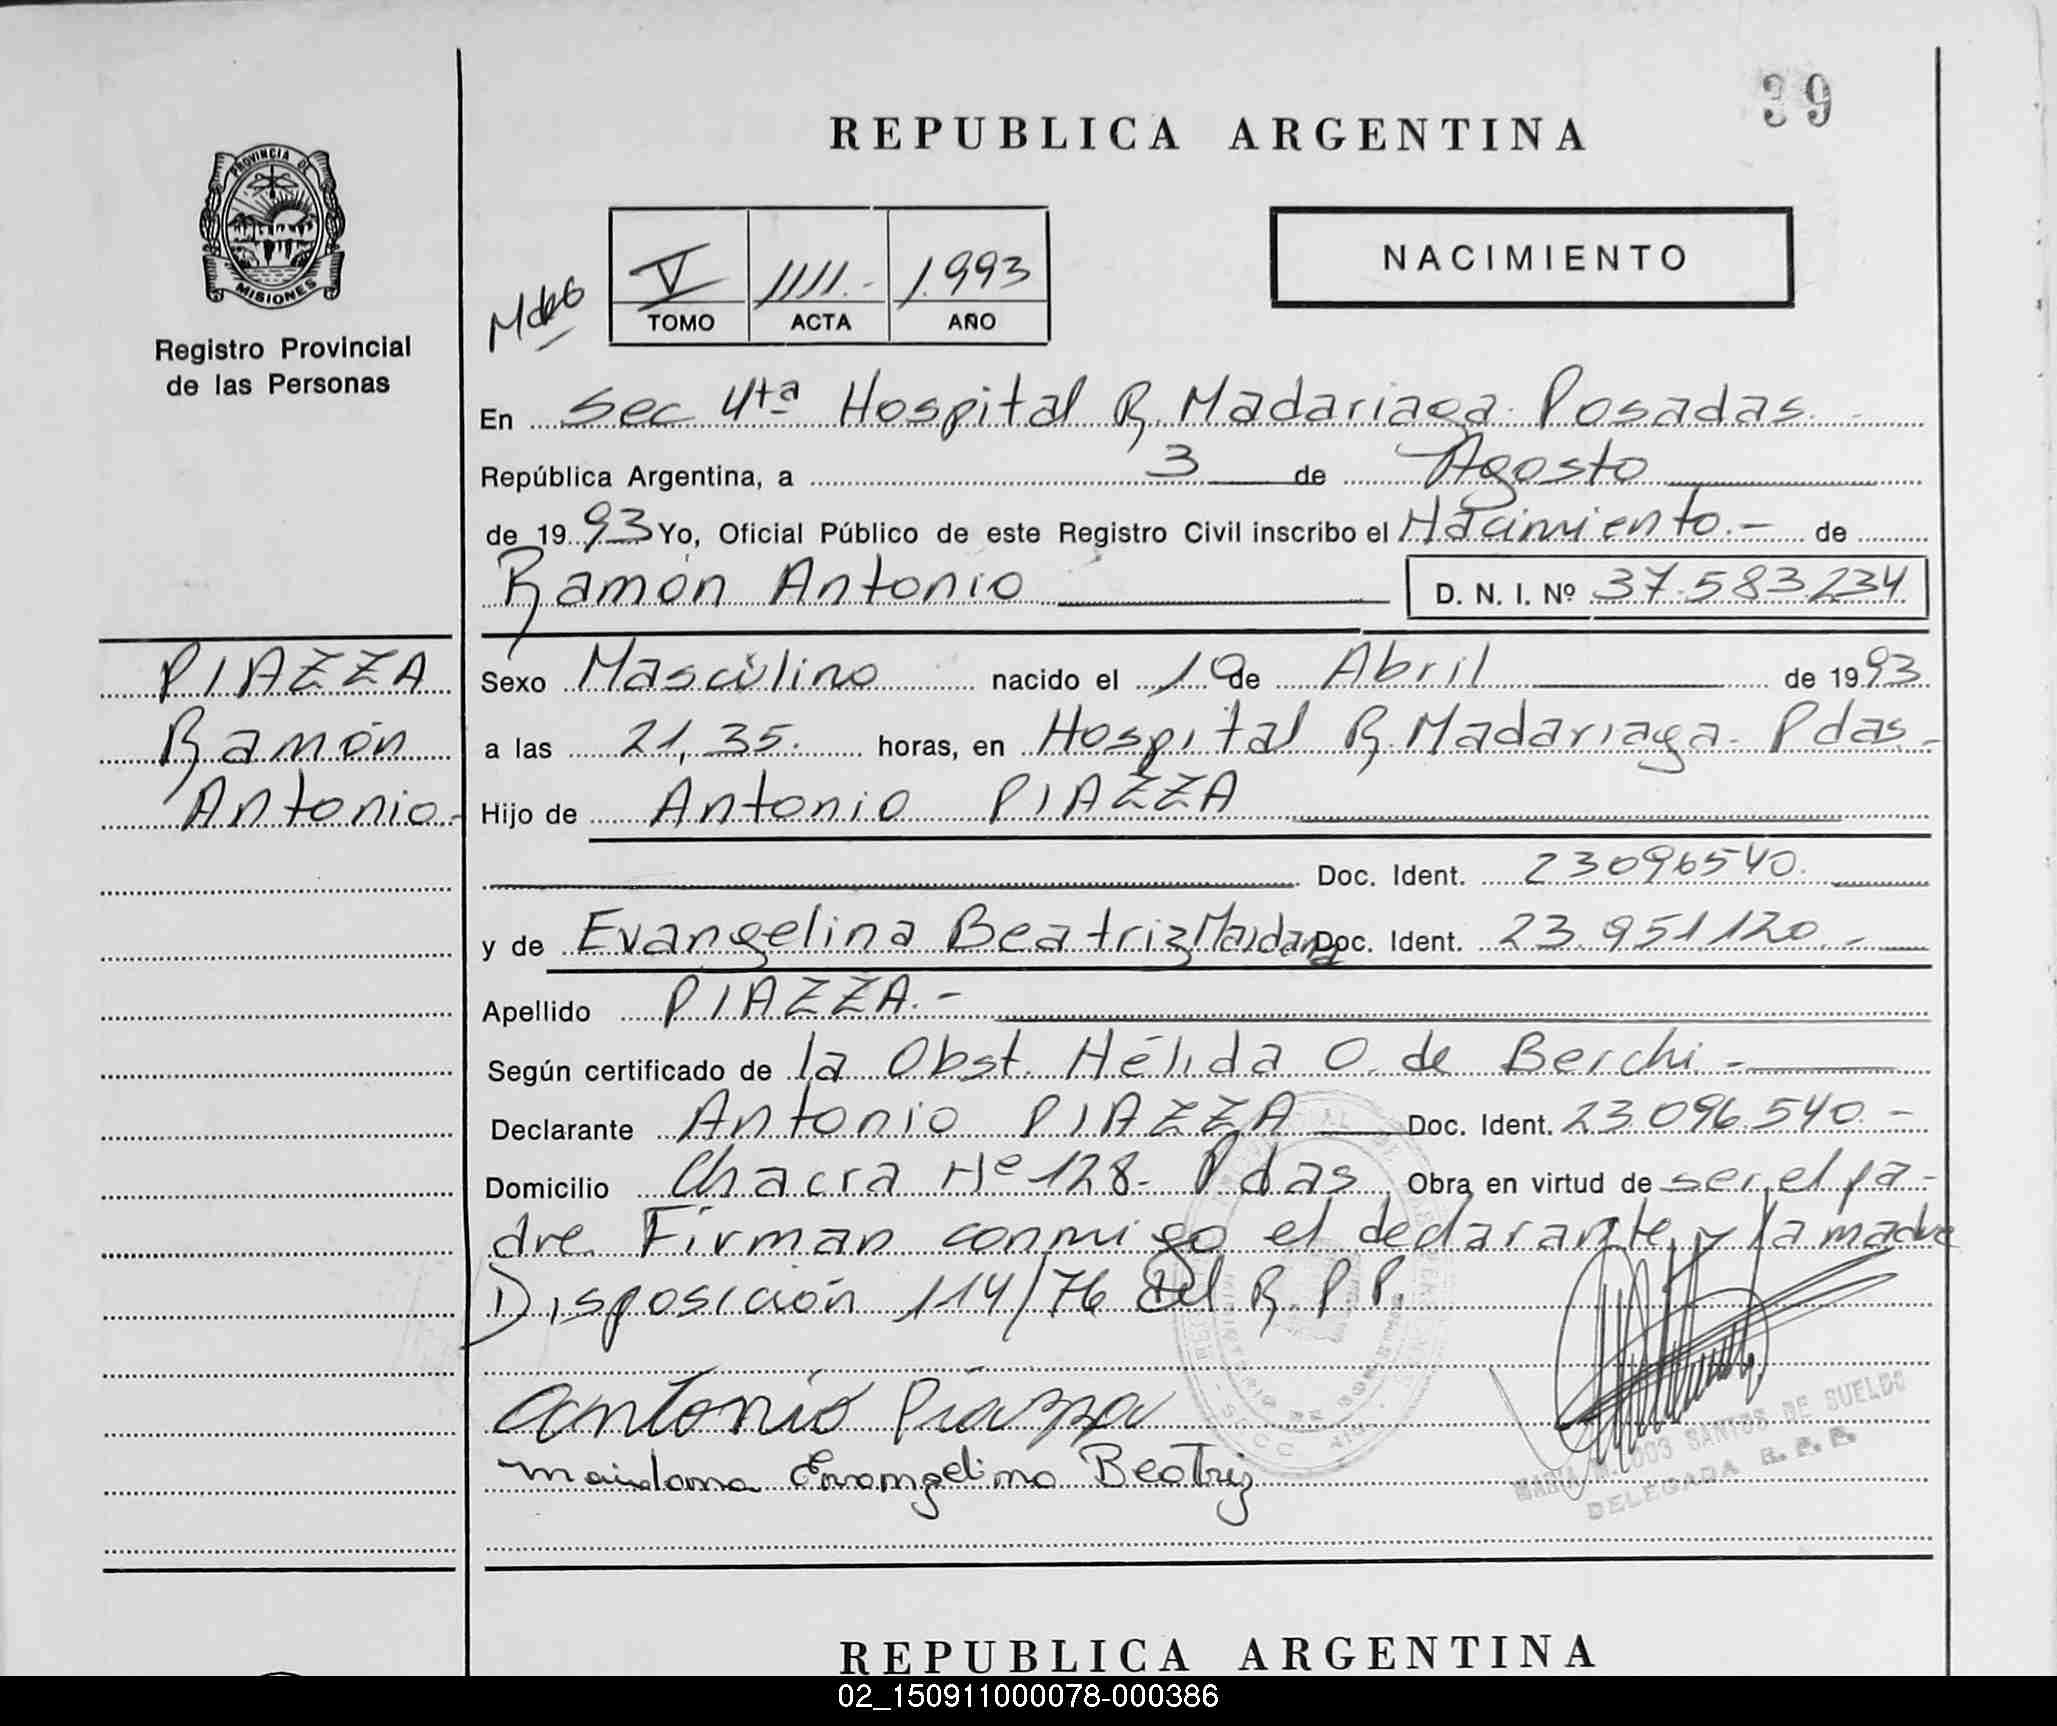 39
REPUBLICA ARGENTINA
PROVINCIA DE
MISIONES
Registro Provincial
de las Personas
V 1111.- 1.993
TOMO ACTA AÑO
NACIMIENTO
En Sec 4ta Hospital R. Madariaga. Posadas.-
República Argentina, a 3 de Agosto
de 1993 Yo, Oficial Público de este Registro Civil inscribo el Nacimiento.- de
Ramón Antonio D. N. I. Nº 37.583.234
PIAZZA
Ramón
Antonio.-
Sexo Masculino nacido el 19 de Abril de 1993
a las 21,35. horas, en Hospital R. Madariaga. Pdas.-
Hijo de Antonio PIAZZA
Doc. Ident. 23096540.
y de Evangelina Beatriz Maidana Doc. Ident. 23.951.120.-
Apellido PIAZZA.-
Según certificado de la Obst. Hélida O. de Berchi.-
Declarante Antonio PIAZZA Doc. Ident. 23.096.540.-
Domicilio Chacra Nº 128. Pdas Obra en virtud de ser el pa-
dre. Firman conmigo el declarante y la madre
Disposición 114/76 del R.P.P.
Antonio Piazza
Maidana Evangelina Beatriz
SANTOS DE SUELDO
DELEGADA R. P. P.
REPUBLICA ARGENTINA
02_150911000078-000386